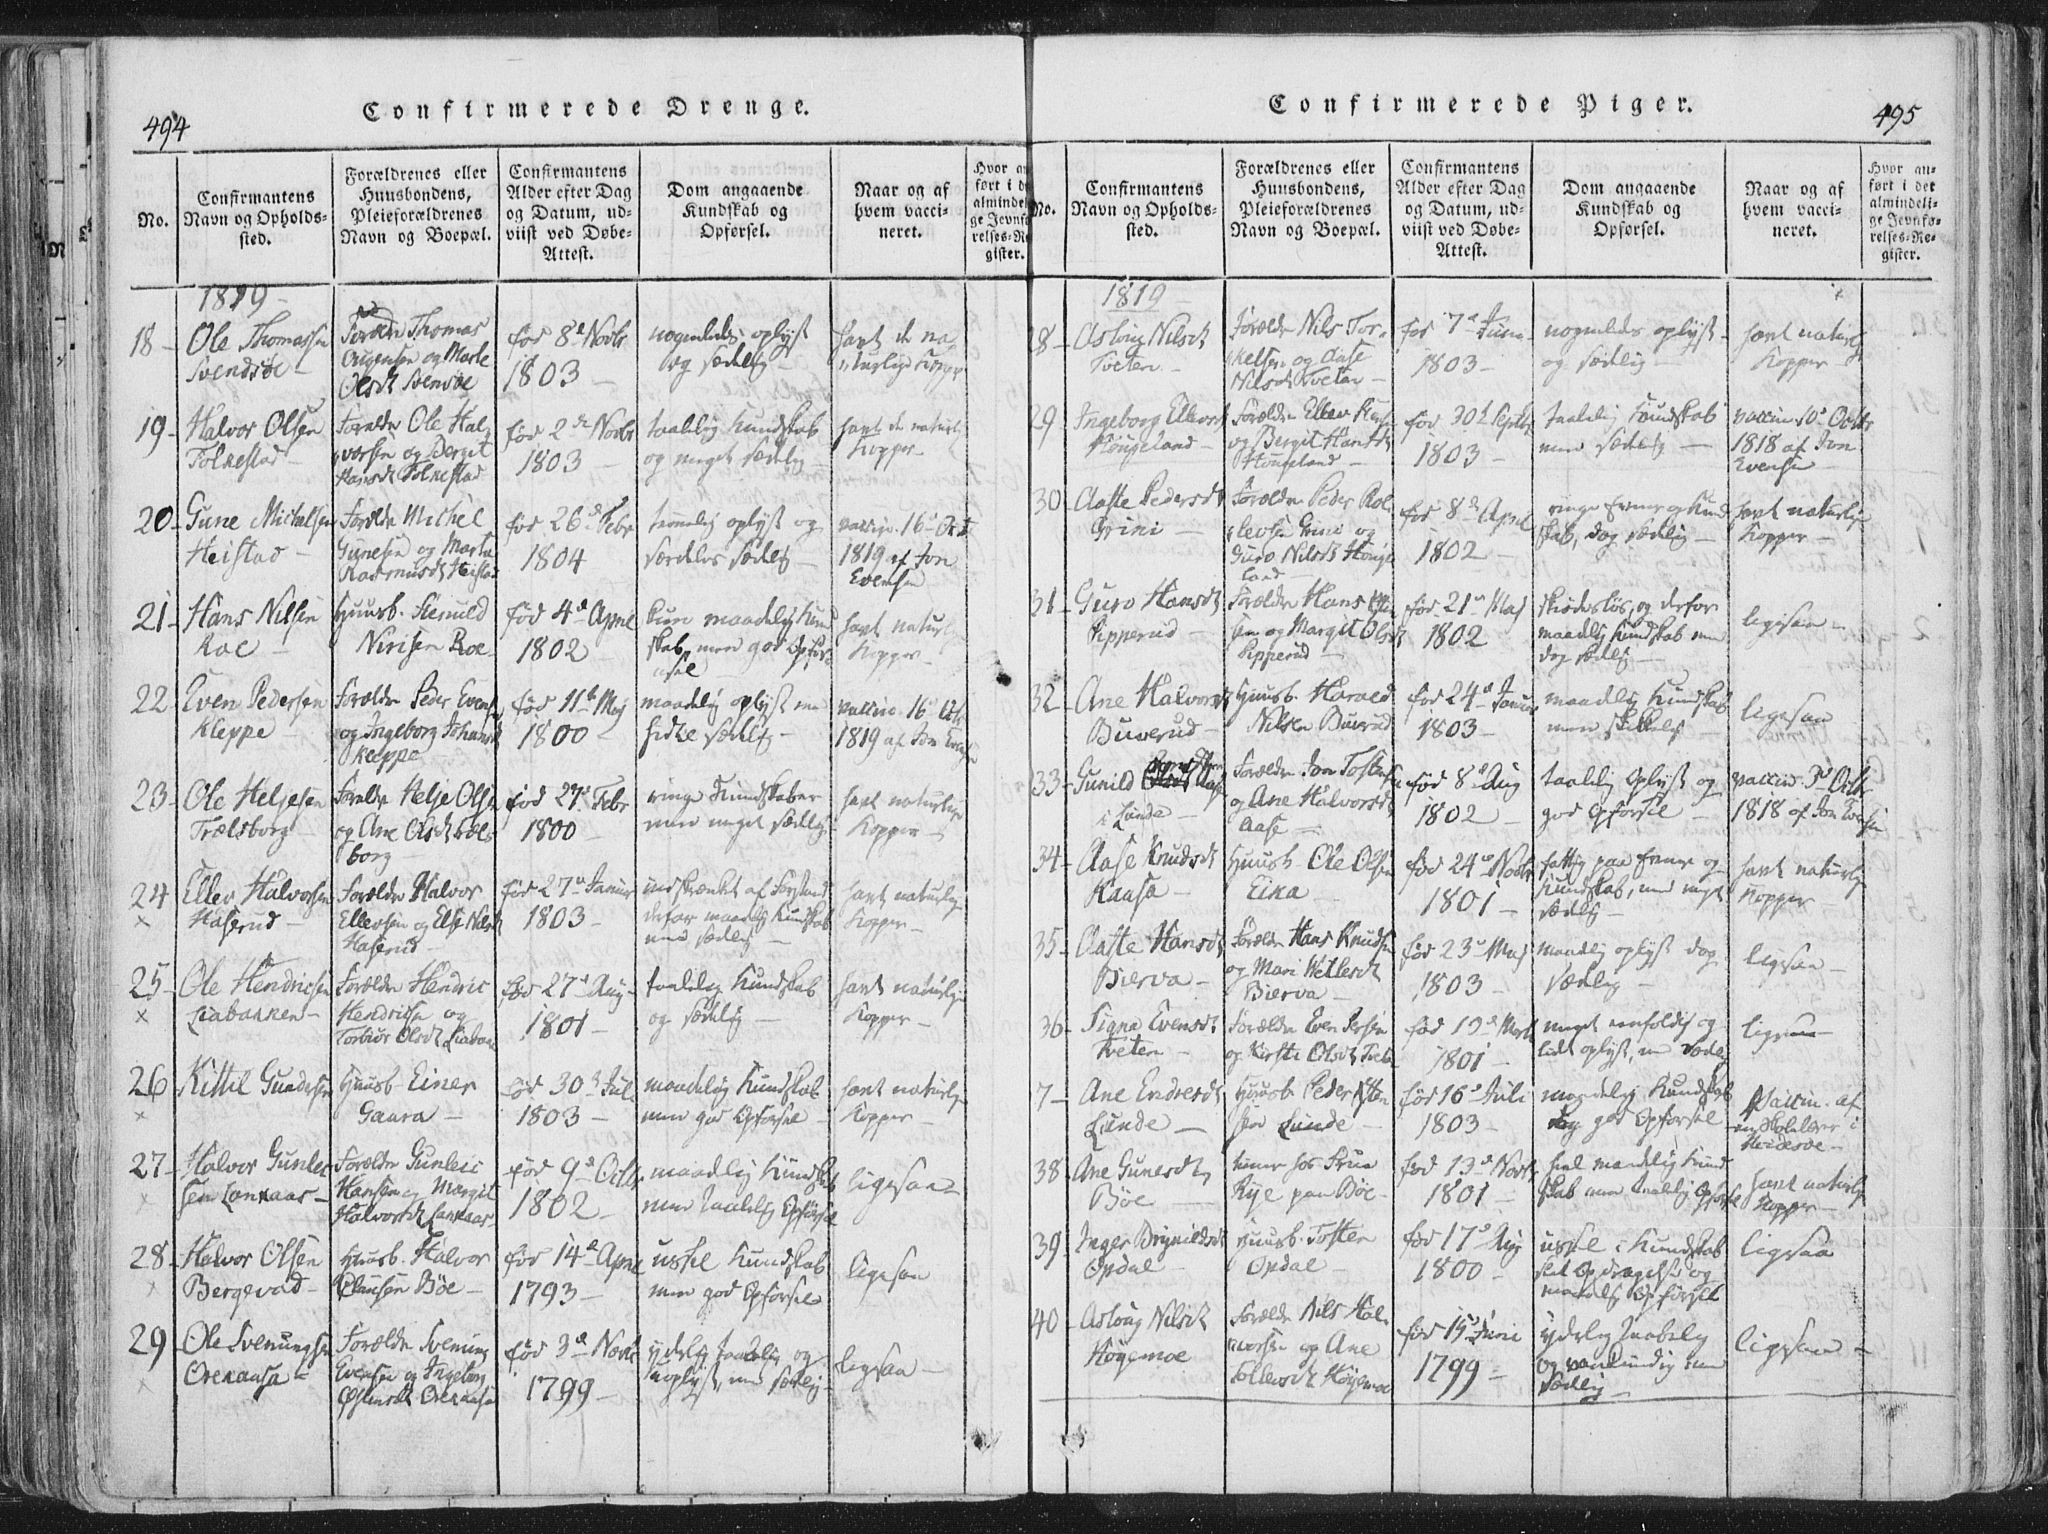 494
Confirmerede Drenge.
No.
Confirmantens
Navn og Opholds-
sted.
Forældrenes eller
Huusbondens,
Pleieforældrenes
Navn og Boepæl.
Confirmantens
Alder efter Dag
og Datum, ud-
viist ved Døbe-
Attest.
Dom angaaende
Kundskab og
Opførsel.
Naar og af
hvem vacci-
neret.
Hvor an
ført i de
almindel
ge Jevnfø
relses-Re
gister.
1819
18
Ole Thomassen
Svendsøe
Foræld Thomas
og Marte
Olsdt Svensøe
fød 8d Novbr
1803
nogenledes oplyst
og sædelig
havt de na
turlige Kopper
19
Halvor Olsen
Folkestad
Forældre Ole Hal
vorsen og Bergit
Hansdt Folkestad
fød 2de Novbr
1803
taalelig Kundskab
og meget sædelig
havt de naturl
Kopper
20
Gune Michelsen
Heistad
Forældre Michel
Gunesen og Marta
Rasmusdt Heistad
fød 26d Febr
1804
temmelig oplyst og
særdeles sædelig
vaccin. 16d Oct
1819 af Jon
Evensen
21
Hans Nilsen
Roe
Huusb.
Roe
fød 4d April
1802
kun maadelig Kund
skab, men god Opfør
sel
havt naturl
Kopper
22
Even Pedersen
Kleppe
Forældre Peder Evensen
og Ingeborg Johansdt
Kleppe
fød 11te Maj
1800
maadelig oplyst men
sædelig
vaccin. 16d Octbr
1819 af Jon Evensen
23
Ole Heljesen
Trælsborg
Forældre Helje Olsen
og Ane Olsdt Træls
borg
fød 27d Febr
1800
ringe Kundskaber
men meget sædelig
havt naturlige
Kopper
24
×
Ellev Halvorsen
Haserud
Forældre Halvor
Ellevsen og Else Nilsdt
Haserud
fød 27d Januar
1803
indskrænket af Forstand
derfor maadelig Kundskab
men sædelig
havt naturlige
Kopper
25
×
Ole Hendricsen
Liabakken
Forældre Hendric
Hendricsen og
Torbiør Olsdt
fød 27d Aug
1801
taalelig Kundskab
og sædelig
havt naturlige
Kopper
26
×
Kittil Gundersen
Huusb. Einer
Gaara
fød 30d Juli
1803
maadelig Kundskab
men god Opførsel
havt naturlige
Kopper
27
×
Halvor Gunleic
sen Lankaas
Forældre Gunleic
Hansen og Margit
Halvorsdt Lankaas
fød 9d Octbr
1802
maadelig Kundskab
men taalelig Opførsel
ligesaa
28
×
Halvor Olsen
Bergevad
Huusb. Halvor
Clausen Bøe
fød 14d April
1793
ussel Kundskab
men god Opførsel
ligesaa
29
×
Ole Svenungsen
Forældre Svenung
Evensen og Ingeborg
fød 3d Novbr
1799
yderlig taabelig og
uoplyst, men sædelig
ligesaa
495
Confirmerede Piger.
No.
Confirmantens
Navn og Opholds-
sted.
Forældrenes eller
Huusbondens,
Pleieforældrenes
Navn og Boepæl.
Confirmantens
Alder efter Dag
og Datum, ud-
viist ved Døbe-
Attest.
Dom angaaende
Kundskab og
Opførsel.
Naar og af
hvem vacci-
neret.
Hvor an-
ført i det
almindeli-
ge Jevnfø-
relses-Re-
gister.
1819
28
Asloug Nilsdt
Tveten
Forældre Nils Tor
kelsen og Aase
Nilsdt Tveten
fød 7d Juni
1803
nogenledes oplyst
og sædelig
havt naturlig
Kopper
29
Ingeborg Ellevsdt
Hougeland
Forældre Ellev
og Bergit Hansdt
Hougeland
fød 30d Septbr
1803
taalelig Kundskab
men sædelig
vaccin 10d Octbr
1818 af Jon
Evensen
30
Aaste Pedersdt
Grini
Forældre Peder Rol
levsen Grini og
Guro Nilsdt Houge
land
fød 8d April
1802
ringe Evner og Kund
skab, dog sædelig
havt naturlige
Kopper
31
Guro Hansdt
Pipperud
Forældre Hans
sen og Margit Olsdt
Pipperud
fød 21d Maj
1802
skiødesløs, og derfor
maadelig Kundskab men
dog sædelig
ligesaa
32
Ane Halvorsdt
Buverud
Huusb. Harald
Nilsen Buverud
fød 24d Januar
1803
maadelig Kundskab
men skikkelig
ligesaa
33
Gunild Aase
i Lunde
Forældre Jon Tostensen
og Ane Halvorsdt
Aase
fød 8d Aug
1802
taalelig oplyst og
god Opførsel
vaccin. 3d Octbr
1818 af Jon Evensen
34
Aase Knudsdt
Kaasa
Huusb. Ole Olsen
Eika
fød 24d Novbr
1801
fattig paa Evner og
Kundskab, men meget
sædelig
havt naturlig
Kopper
35
Aaste Hansdt
Bierva
Forældre Hans Knudsen
og Mari Wetlesdt
Bierva
fød 23d Maj
1803
maadelig oplyst dog
sædelig
ligesaa
36
Signe Evensdt
Tveten
Forældre Even Iversen
og Kirsti Olsdt Tveten
fød 19d Marts
1801
meget eenfoldig og
lidt oplyst, men sædelig
ligesaa
7
Ane Endresdt
Lunde
Huusb. Peder
sen Lunde
fød 16d Juli
1803
maadelig Kundskab
dog god Opførsel
Vaccin. af
en Skolelærer i
Hvideseie
38
Ane Gunesdt
Bøe
tiener hos Frue
Rye paa Bøe
fød 13d Novbr
1801
heel maadelig Kund
skab men taalelig Opførsel
havt naturlige
Kopper
39
Inger Brynildsdt
Opdal
Huusb. Tosten
Opdal
fød 17d Aug
1800
ussel i Kundskab
slet Opdragelse og
maadelig Opførsel
ligesaa
40
Asloug Nilsdt
Høyemoe
Forældre Nils Hal
vorsen og Ane
Høyemoe
fød 15d Juni
1799
yderlig taabelig
og vankundig men
sædelig
ligesaa